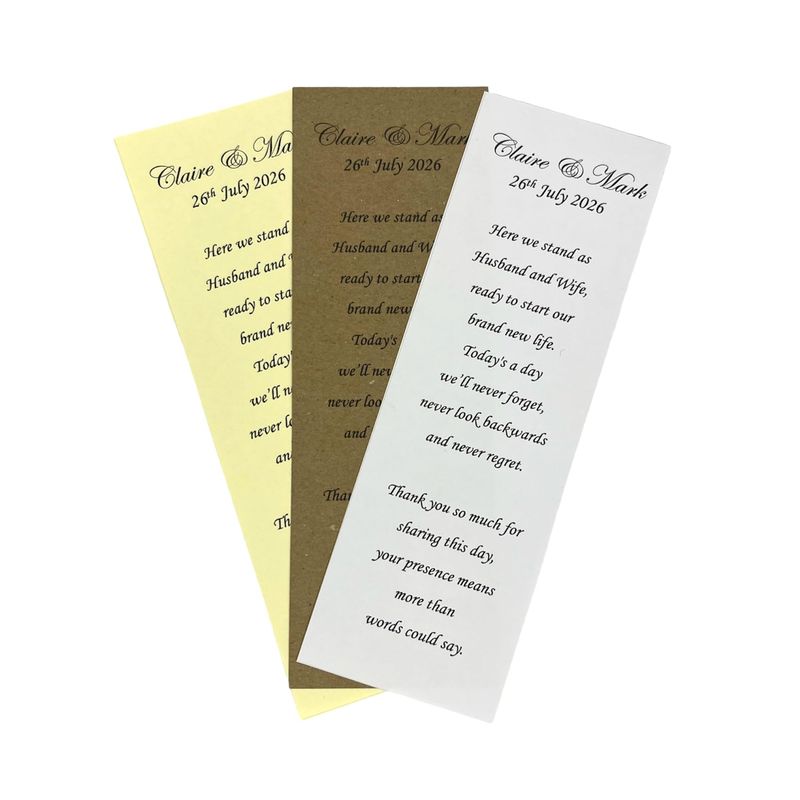 Claire & Ma
26th July 2026
Here we stand
Husband and W
ready to sta
brand ne
Today's
we'll n
never lo
an
Th
Claire & Mark
26th July 2026
Here we stand as
Husband and Wife
ready to start
brand new
Today's
we'll nev
never loo
and
Than
Claire & Mark
26th July 2026
Here we stand as
Husband and Wife,
ready to start our
brand new life.
Today's a day
we'll never forget,
never look backwards
and never regret.
Thank you so much for
sharing this day,
your presence means
more than
words could say.